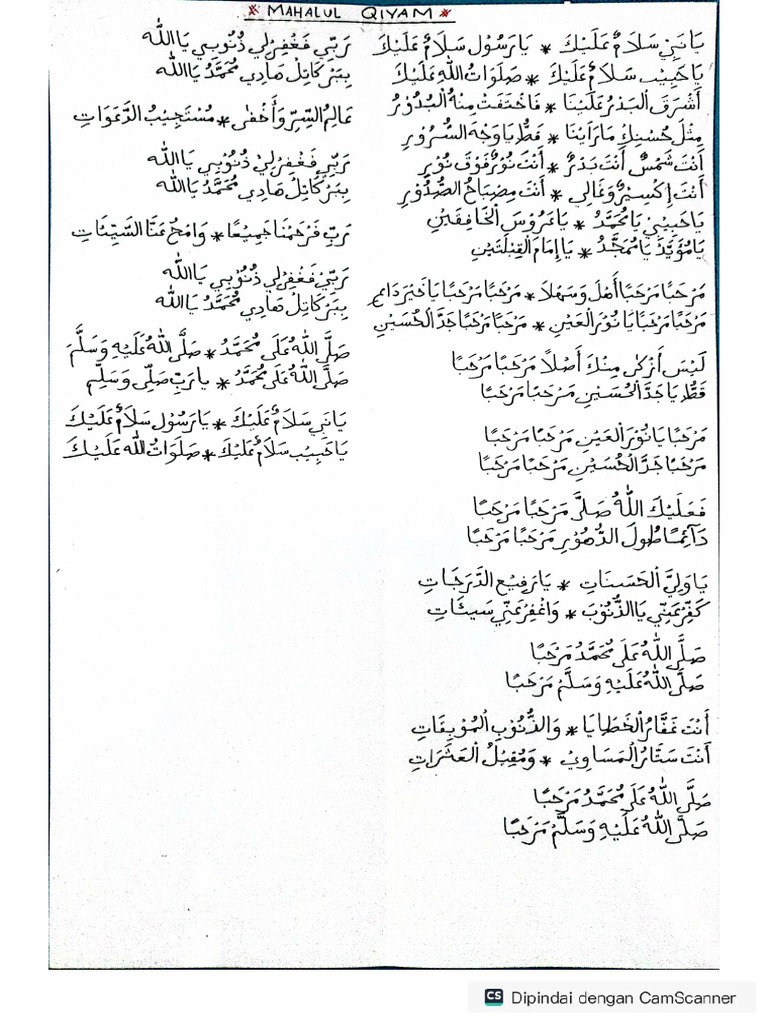 * MAHALUL QIYAM *
يَا نَبِيْ سَلَامْ عَلَيْكَ * يَا رَسُوْل سَلَامْ عَلَيْكَ
يَا حَبِيْب سَلَامْ عَلَيْكَ * صَلَوَاتُ اللّٰه عَلَيْكَ
أَشْرَقَ الْبَدْرُ عَلَيْنَا * فَاخْتَفَتْ مِنْهُ الْبُدُوْرُ
مِثْلَ حُسْنِكْ مَا رَأَيْنَا * قَطُّ يَا وَجْهَ السُّرُوْرِ
أَنْتَ شَمْسٌ أَنْتَ بَدْرٌ * أَنْتَ نُوْرٌ فَوْقَ نُوْرِ
أَنْتَ إِكْسِيْرٌ وَغَالِي * أَنْتَ مِصْبَاحُ الصُّدُوْرِ
يَا حَبِيْبِيْ يَا مُحَمَّدُ * يَا عَرُوْسَ الْخَافِقَيْنِ
يَا مُؤَيَّدْ يَا مُمَجَّدُ * يَا إِمَامَ الْقِبْلَتَيْنِ
مَرْحَبًا مَرْحَبًا أَهْلَ وَسَهْلَا * مَرْحَبًا مَرْحَبًا يَا خَيْرَ دَاعِي
مَرْحَبًا مَرْحَبًا يَا نُوْرَ الْعَيْنِ * مَرْحَبًا مَرْحَبًا جَدَّ الْحُسَيْنِ
لَيْسَ أَزْكٰى مِنْكَ أَصْلًا مَرْحَبًا مَرْحَبًا
قَطُّ يَا جَدَّ الْحُسَيْنِ مَرْحَبًا مَرْحَبًا
مَرْحَبًا يَا نُوْرَ الْعَيْنِ مَرْحَبًا مَرْحَبًا
مَرْحَبًا جَدَّ الْحُسَيْنِ مَرْحَبًا مَرْحَبًا
فَعَلَيْكَ اللّٰهُ صَلَّى مَرْحَبًا مَرْحَبًا
دَآئِمًا طُولَ الدُّهُوْرِ مَرْحَبًا مَرْحَبًا
يَا وَلِيَّ الْحَسَنَاتِ * يَا رَفِيْعَ الدَّرَجَاتِ
كَفِّرْ عَنِّي يَا الذُّنُوْبَ * وَاغْفِرْ عَنِّي سَيِئَاتِ
صَلَّى اللّٰهُ عَلَى مُحَمَّدْ مَرْحَبًا
صَلَّى اللّٰهُ عَلَيْهِ وَسَلَّمْ مَرْحَبًا
أَنْتَ غَفَّارُ الْخَطَايَا * وَالذُّنُوْبِ الْمُوْبِقَاتِ
أَنْتَ سَتَّارُ الْمَسَاوِيْ * وَمُقِيْلُ الْعَثَرَاتِ
صَلَّى اللّٰهُ عَلَى مُحَمَّدْ مَرْحَبًا
صَلَّى اللّٰهُ عَلَيْهِ وَسَلَّمْ مَرْحَبًا
رَبِّي فَغْفِرْلِي ذُنُوْبِي يَا اللّٰه
بِبَرْكَاتِلْ هَادِي مُحَمَّدْ يَا اللّٰه
عَالِمُ السِّرِّ وَأَخْفٰى * مُسْتَجِيْبُ الدَّعَوَاتِ
رَبِّي فَغْفِرْلِيْ ذُنُوْبِي يَا اللّٰه
بِبَرْكَاتِلْ هَادِي مُحَمَّدْ يَا اللّٰه
رَبِّ فَرْحَمْنَا جَمِيْعًا * وَامْحُ عَنَّا السَّيِّئَاتِ
رَبِّيْ فَغْفِرْلِي ذُنُوْبِي يَا اللّٰه
بِبَرْكَاتِلْ هَادِي مُحَمَّدْ يَا اللّٰه
صَلَّى اللّٰهُ عَلَى مُحَمَّدْ * صَلَّى اللّٰهُ عَلَيْهِ وَسَلَّمَ
صَلَّى اللّٰهُ عَلَى مُحَمَّدْ * يا رَبِّ صَلِّي وَسَلِّم
يَا نَبِي سَلَامْ عَلَيْكَ * يَا رَسُوْل سَلَامْ عَلَيْكَ
يَا حَبِيْب سَلَامْ عَلَيْكَ * صَلَوَاتُ اللّٰه عَلَيْكَ
CS Dipindai dengan CamScanner